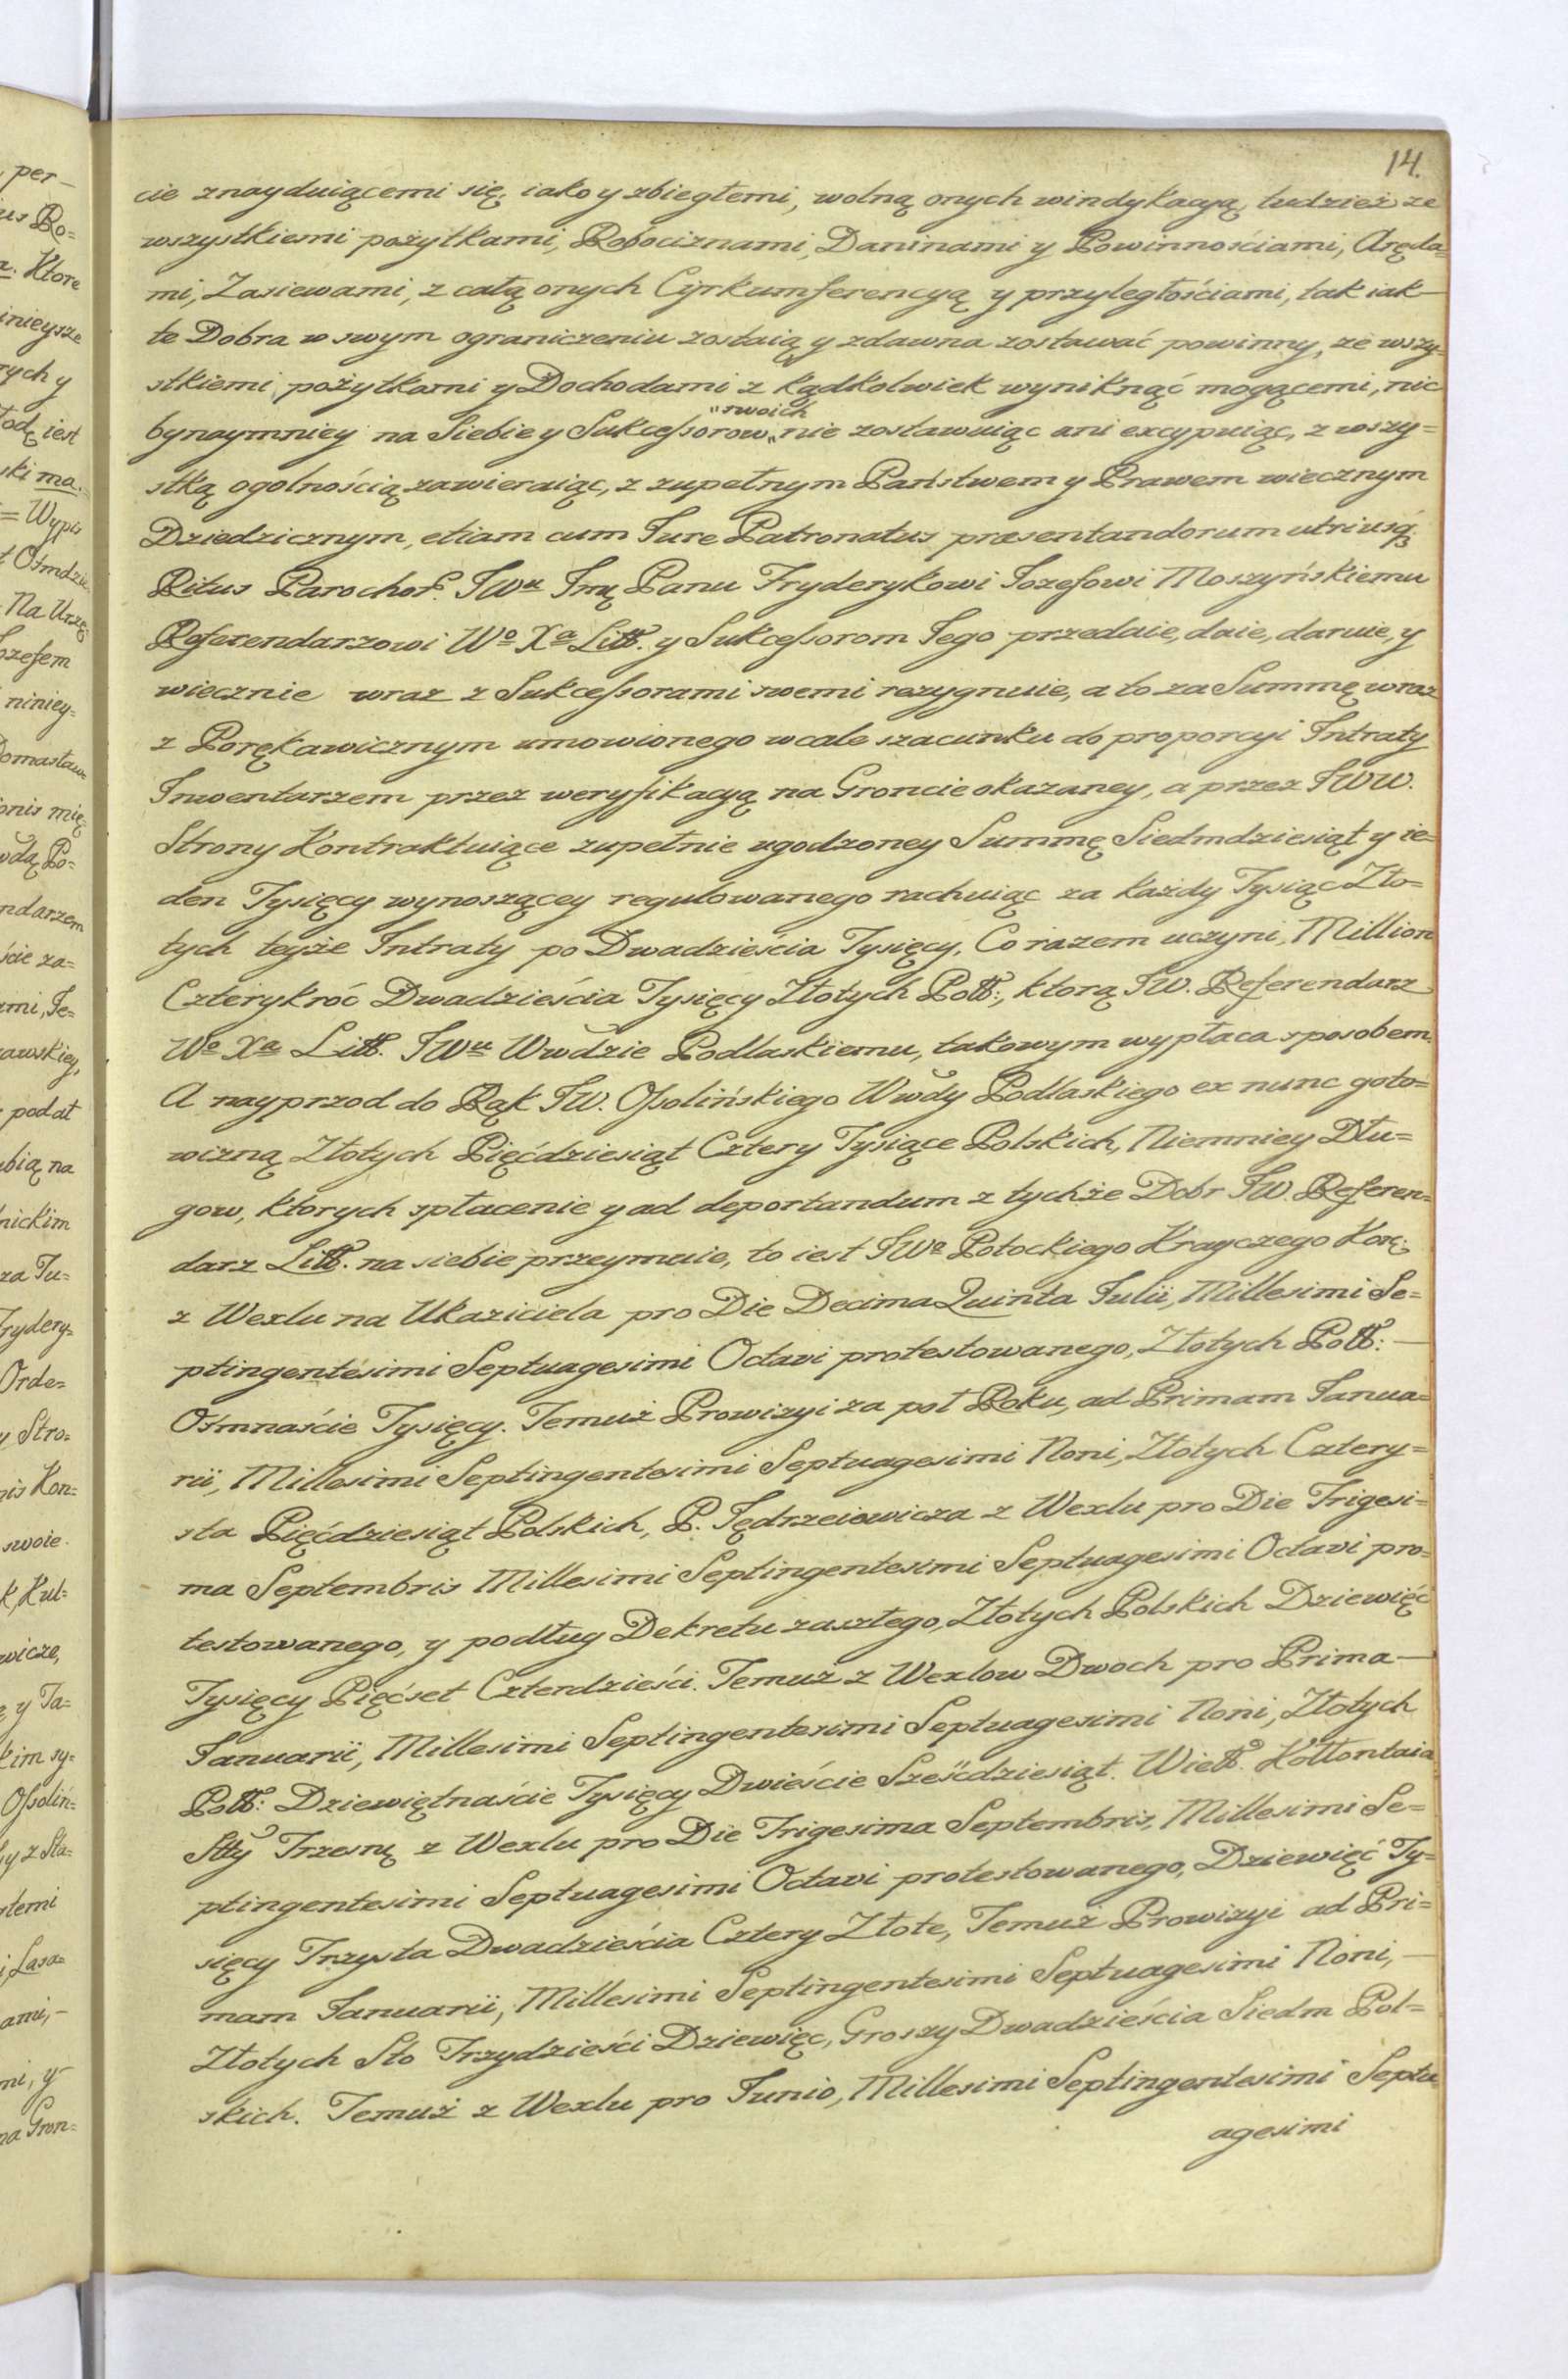 14.
cie znayduiącemi się, iako y zbiegłemi, wolną onych windykacyą, tudzież ze
wszystkiemi pożytkami, Robociznami, Daninami y Powinnościami, Aręda=
mi, Zasiewami, z całą onych Cyrkumferencyą y przyległościami, tak iak—
te Dobra w swym ograniczeniu zostaią y zdawna zostawać powinny, ze wszy=
stkiemi pożytkami y Dochodami z kądkolwiek wyniknąć mogącemi, nic
bynaymniey na Siebie y Sukcessorow „swoich„ nie zostawuiąc ani excypuiąc, z wszy=
stką ogolnością zawieraiąc, z zupełnym Państwem y Prawem wiecznym
Dziedzicznym, etiam cum Jure Patronatus præsentandorum utriusq;
Ritus Parochor. JWu Jmę Panu Fryderykowi Jozefowi Moszyńskiemu
Referendarzowi Wo Xa Litt. y Sukcessorom Jego przedaie, daie, daruie, y
wiecznie wraz z Sukcessorami swemi rezygnuie, a to za Summę wraz
z Porękawicznym umowionego wcale szacunku do proporcyi Intraty
Inwentarzem przez weryfikacyą na Groncie okazaney, a przez JWW.
Strony Kontraktuiące zupełnie ugodzoney Summę Siedmdziesiąt y ie=
den Tysięcy wynoszącey regulowanego rachuiąc za każdy Tysiąc Zło=
tych teyże Intraty po Dwadzieścia Tysięcy, Co razem uczyni, Million
Czterykroć Dwadzieścia Tysięcy Złotych Poll:, ktorą JW. Referendarz
Wo Xa Litt. JWu Wwdzie Podlaskiemu, takowym wypłaca sposobem.
A nayprzod do Rąk JW. Ossolińskiego Wwdy Podlaskiego ex nunc goto=
wizną Złotych Pięćdziesiąt Cztery Tysiące Polskich, Niemniey Dłu=
gow, ktorych spłacenie y ad deportandum z tychże Dobr JW. Referen=
darz Litt. na siebie przeymuie, to iest JWo Potockiego Krayczego Kor:
z Wexlu na Ukaziciela pro Die Decima Quinta Julii, Millesimi Se=
ptingentesimi Septuagesimi Octavi protestowanego, Złotych Poll:—
Ośmnaście Tysięcy. Temuż Prowizyi za poł Roku, ad Primam Janua=
rii, Millesimi Septingentesimi Septuagesimi Noni, Złotych Cztery=
sta Pięćdziesiąt Polskich, P. Jędrzeiowicza z Wexlu pro Die Trigesi=
ma Septembris Millesimi Septingentesimi Septuagesimi Octavi pro=
testowanego, y podług Dekretu zaszłego, Złotych Polskich Dziewięć
Tysięcy Pięćset Czterdzieści. Temuż z Wexlow Dwoch pro Prima—
Januarii, Millesimi Septingentesimi Septuagesimi Noni, Złotych
Poll: Dziewiętnaście Tysięcy Dwieście Sześćdziesiąt. Wiel. Kołłontaia
Stty Trzesnę z Wexlu pro Die Trigesima Septembris, Millesimi Se=
ptingentesimi Septuagesimi Octavi protestowanego, Dziewięć Ty=
sięcy Trzysta Dwadzieścia Cztery Złote, Temuż Prowizyi ad Pri=
mam Januarii, Millesimi Septingentesimi Septuagesimi Noni,—
Złotych Sto Trzydzieści Dziewięc, Groszy Dwadzieścia Siedm Pol=
skich. Temuż z Wexlu pro Junio, Millesimi Septingentesimi Septu
agesimi